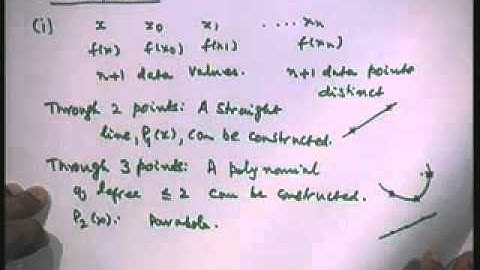 (i) x x₀ x₁ .... xₙ
f(x) f(x₀) f(x₁) f(xₙ)
n+1 data values. n+1 data points
distinct
Through 2 points: A straight
line, P₁(x), can be constructed.
Through 3 points: A polynomial
of degree ≤ 2 can be constructed.
P₂(x): Parabola.